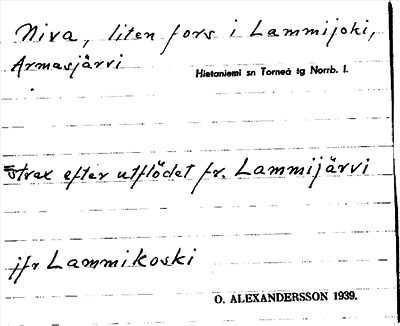 Niva, liten fors i Lammijoki,
Armasjärvi
Hietaniemi sn Torneå tg Norrb. l.
Strax efter utflödet fr. Lammijärvi
jfr Lammikoski
O. ALEXANDERSSON 1939.